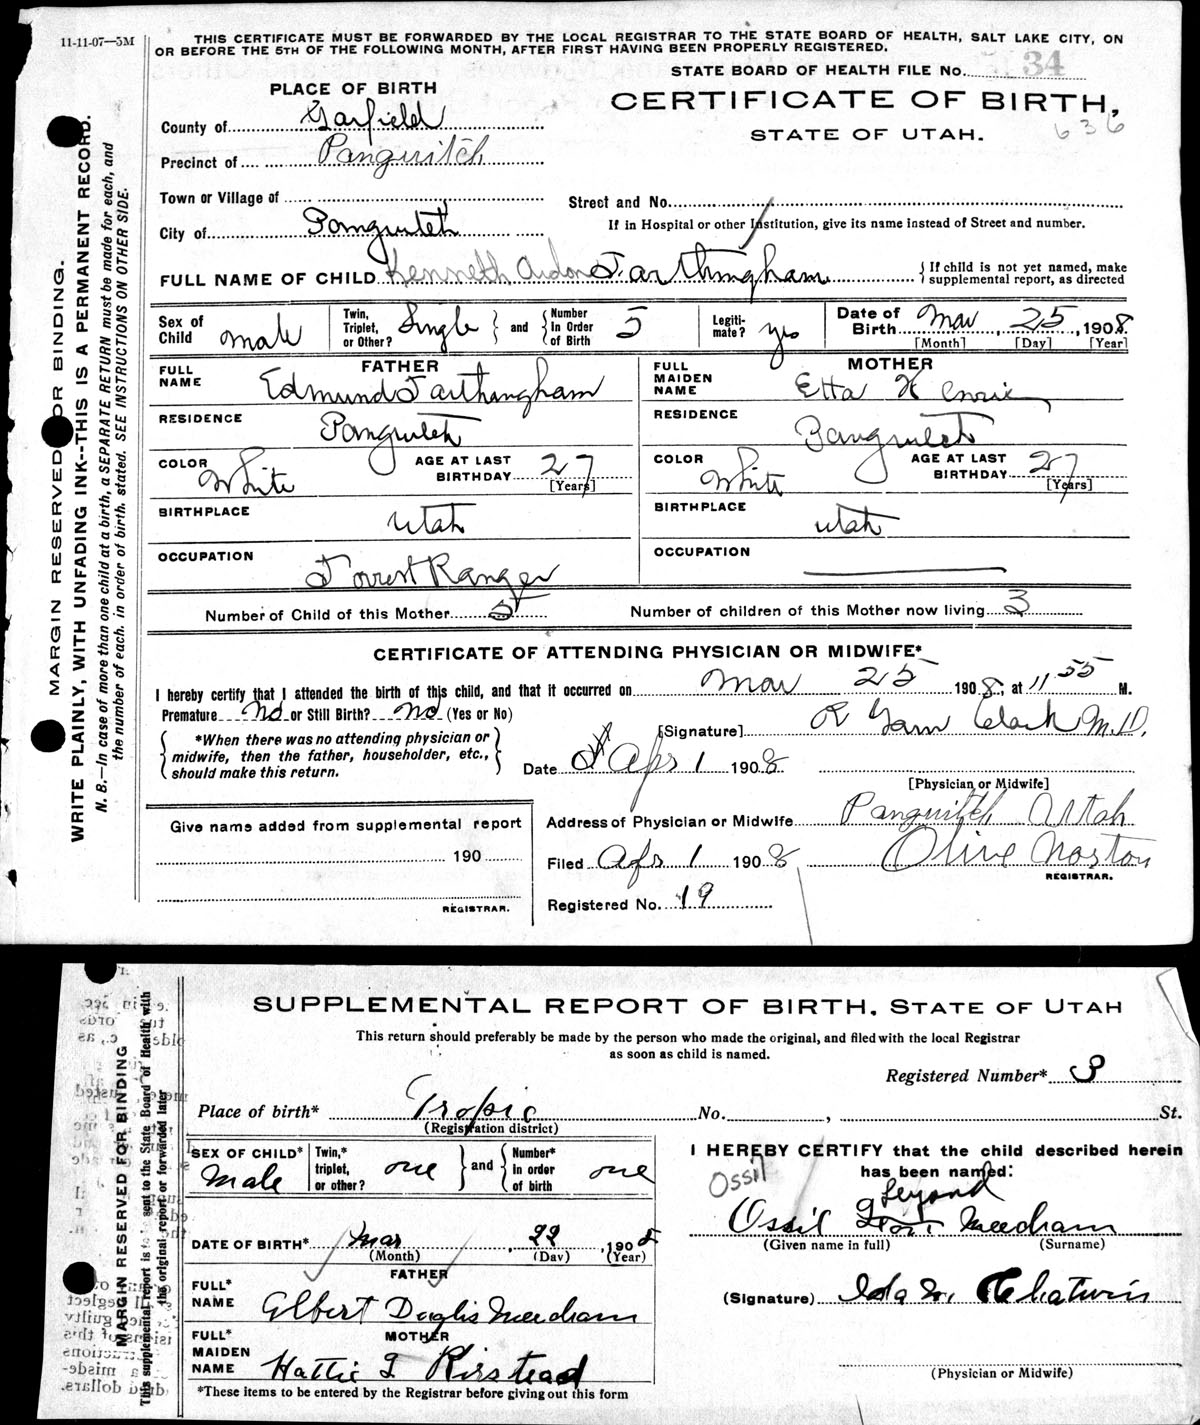 11-11-07—5M
THIS CERTIFICATE MUST BE FORWARDED BY THE LOCAL REGISTRAR TO THE STATE BOARD OF HEALTH, SALT LAKE CITY, ON
OR BEFORE THE 5TH OF THE FOLLOWING MONTH, AFTER FIRST HAVING BEEN PROPERLY REGISTERED.
STATE BOARD OF HEALTH FILE No. 34
PLACE OF BIRTH
CERTIFICATE OF BIRTH,
STATE OF UTAH.
636
County of Garfield
Precinct of Panguitch
Town or Village of
Street and No.
If in Hospital or other Institution, give its name instead of Street and number.
City of Panguitch
FULL NAME OF CHILD Kenneth Ardon Farthingham
{ If child is not yet named, make supplemental report, as directed
Sex of Child male
Twin, Triplet, or Other? Single } and { Number In Order of Birth 5
Legiti-mate? yes
Date of Birth Mar, 25, 1908
[Month] [Day] [Year]
FATHER
FULL NAME Edmund Farthingham
MOTHER
FULL MAIDEN NAME Etta Henrie
RESIDENCE Panguitch
RESIDENCE Panguitch
COLOR White AGE AT LAST BIRTHDAY 27 [Years]
COLOR White AGE AT LAST BIRTHDAY 27 [Years]
BIRTHPLACE Utah
BIRTHPLACE Utah
OCCUPATION Forrest Ranger
OCCUPATION
Number of Child of this Mother 5
Number of children of this Mother now living 3
CERTIFICATE OF ATTENDING PHYSICIAN OR MIDWIFE*
I hereby certify that I attended the birth of this child, and that it occurred on Mar 25 1908, at 11 55 M.
Premature No or Still Birth? No (Yes or No)
{ *When there was no attending physician or midwife, then the father, householder, etc., should make this return. }
[Signature] R Garn Clark M.D.
Date Apr 1 1908
[Physician or Midwife]
Give name added from supplemental report
190
REGISTRAR.
Address of Physician or Midwife Panguitch Utah
Filed Apr 1 1908 Olive Norton
REGISTRAR.
Registered No. 19
MARGIN RESERVED FOR BINDING.
WRITE PLAINLY, WITH UNFADING INK--THIS IS A PERMANENT RECORD.
N. B.—In case of more than one child at a birth, a SEPARATE RETURN must be made for each, and
the number of each, in order of birth, stated. SEE INSTRUCTIONS ON OTHER SIDE.
SUPPLEMENTAL REPORT OF BIRTH, STATE OF UTAH
This return should preferably be made by the person who made the original, and filed with the local Registrar
as soon as child is named.
Registered Number* 3
Place of birth* Tropic No. , St.
(Registration district)
SEX OF CHILD* Male
Twin,* triplet, or other? one } and { Number* in order of birth one
I HEREBY CERTIFY that the child described herein
has been named:
Ossil
Leyond
Ossil Needham
(Given name in full) (Surname)
DATE OF BIRTH* Mar, 22, 1908
(Month) (Day) (Year)
FATHER
FULL* NAME Albert Duglis Needham
(Signature) Ida M. Chatwin
MOTHER
FULL* MAIDEN NAME Hattie
(Physician or Midwife)
*These items to be entered by the Registrar before giving out this form
MARGIN RESERVED FOR BINDING
This supplemental report is to be sent to the State Board of Health with
the original report or forwarded later